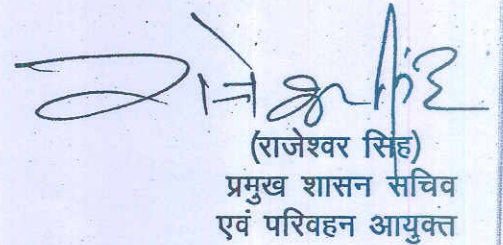 राजेश्वर सिंह
(राजेश्वर सिंह)
प्रमुख शासन सचिव
एवं परिवहन आयुक्त